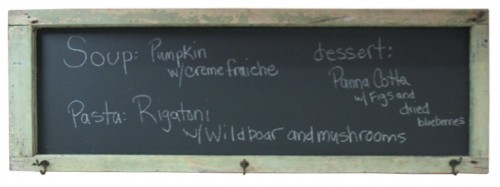 Soup: Pumpkin
w/creme fraiche
Pasta: Rigatoni
w/Wild boar and mushrooms
dessert:
Panna Cotta
w/Figs and
dried
blueberries